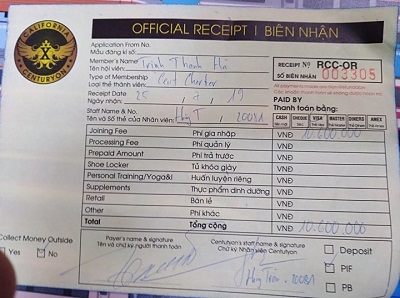 CALIFORNIA
CENTURYON
OFFICIAL RECEIPT | BIÊN NHẬN
Application From No.
Mẫu đăng kí số:
RECEIPT № RCC-OR
SỐ BIÊN NHẬN 003305
Member's Name
Tên hội viên: Trịnh Thanh Hà
Type of Membership
Loại thẻ thành viên: Charter
Receipt Date
Ngày nhận: 25 , 7 , 19
Staff Name & No.
Tên và Số thẻ của Nhân viên: Huy T , 20081
PAID BY
Thanh toán bằng:
CASH CHEQUE VISA MASTER DINERS AMEX
Joining Fee Phí gia nhập VNĐ 10.600.000
Processing Fee Phí quản lý VNĐ
Prepaid Amount Phí trả trước VNĐ
Shoe Locker Tủ khóa giày VNĐ
Personal Training/Yoga& Huấn luyện riêng VNĐ
Supplements Thực phẩm dinh dưỡng VNĐ
Retail Bán lẻ VNĐ
Other Phí khác VNĐ
Total Tổng cộng VNĐ 10.600.000
Collect Money Outside
Yes No
Payer's name & signature
Tên và chữ ký người thanh toán
Centuryon's staff name & signature
Chữ ký Nhân viên Centuryon
Huy Trần - 20081
Deposit
PIF
PB